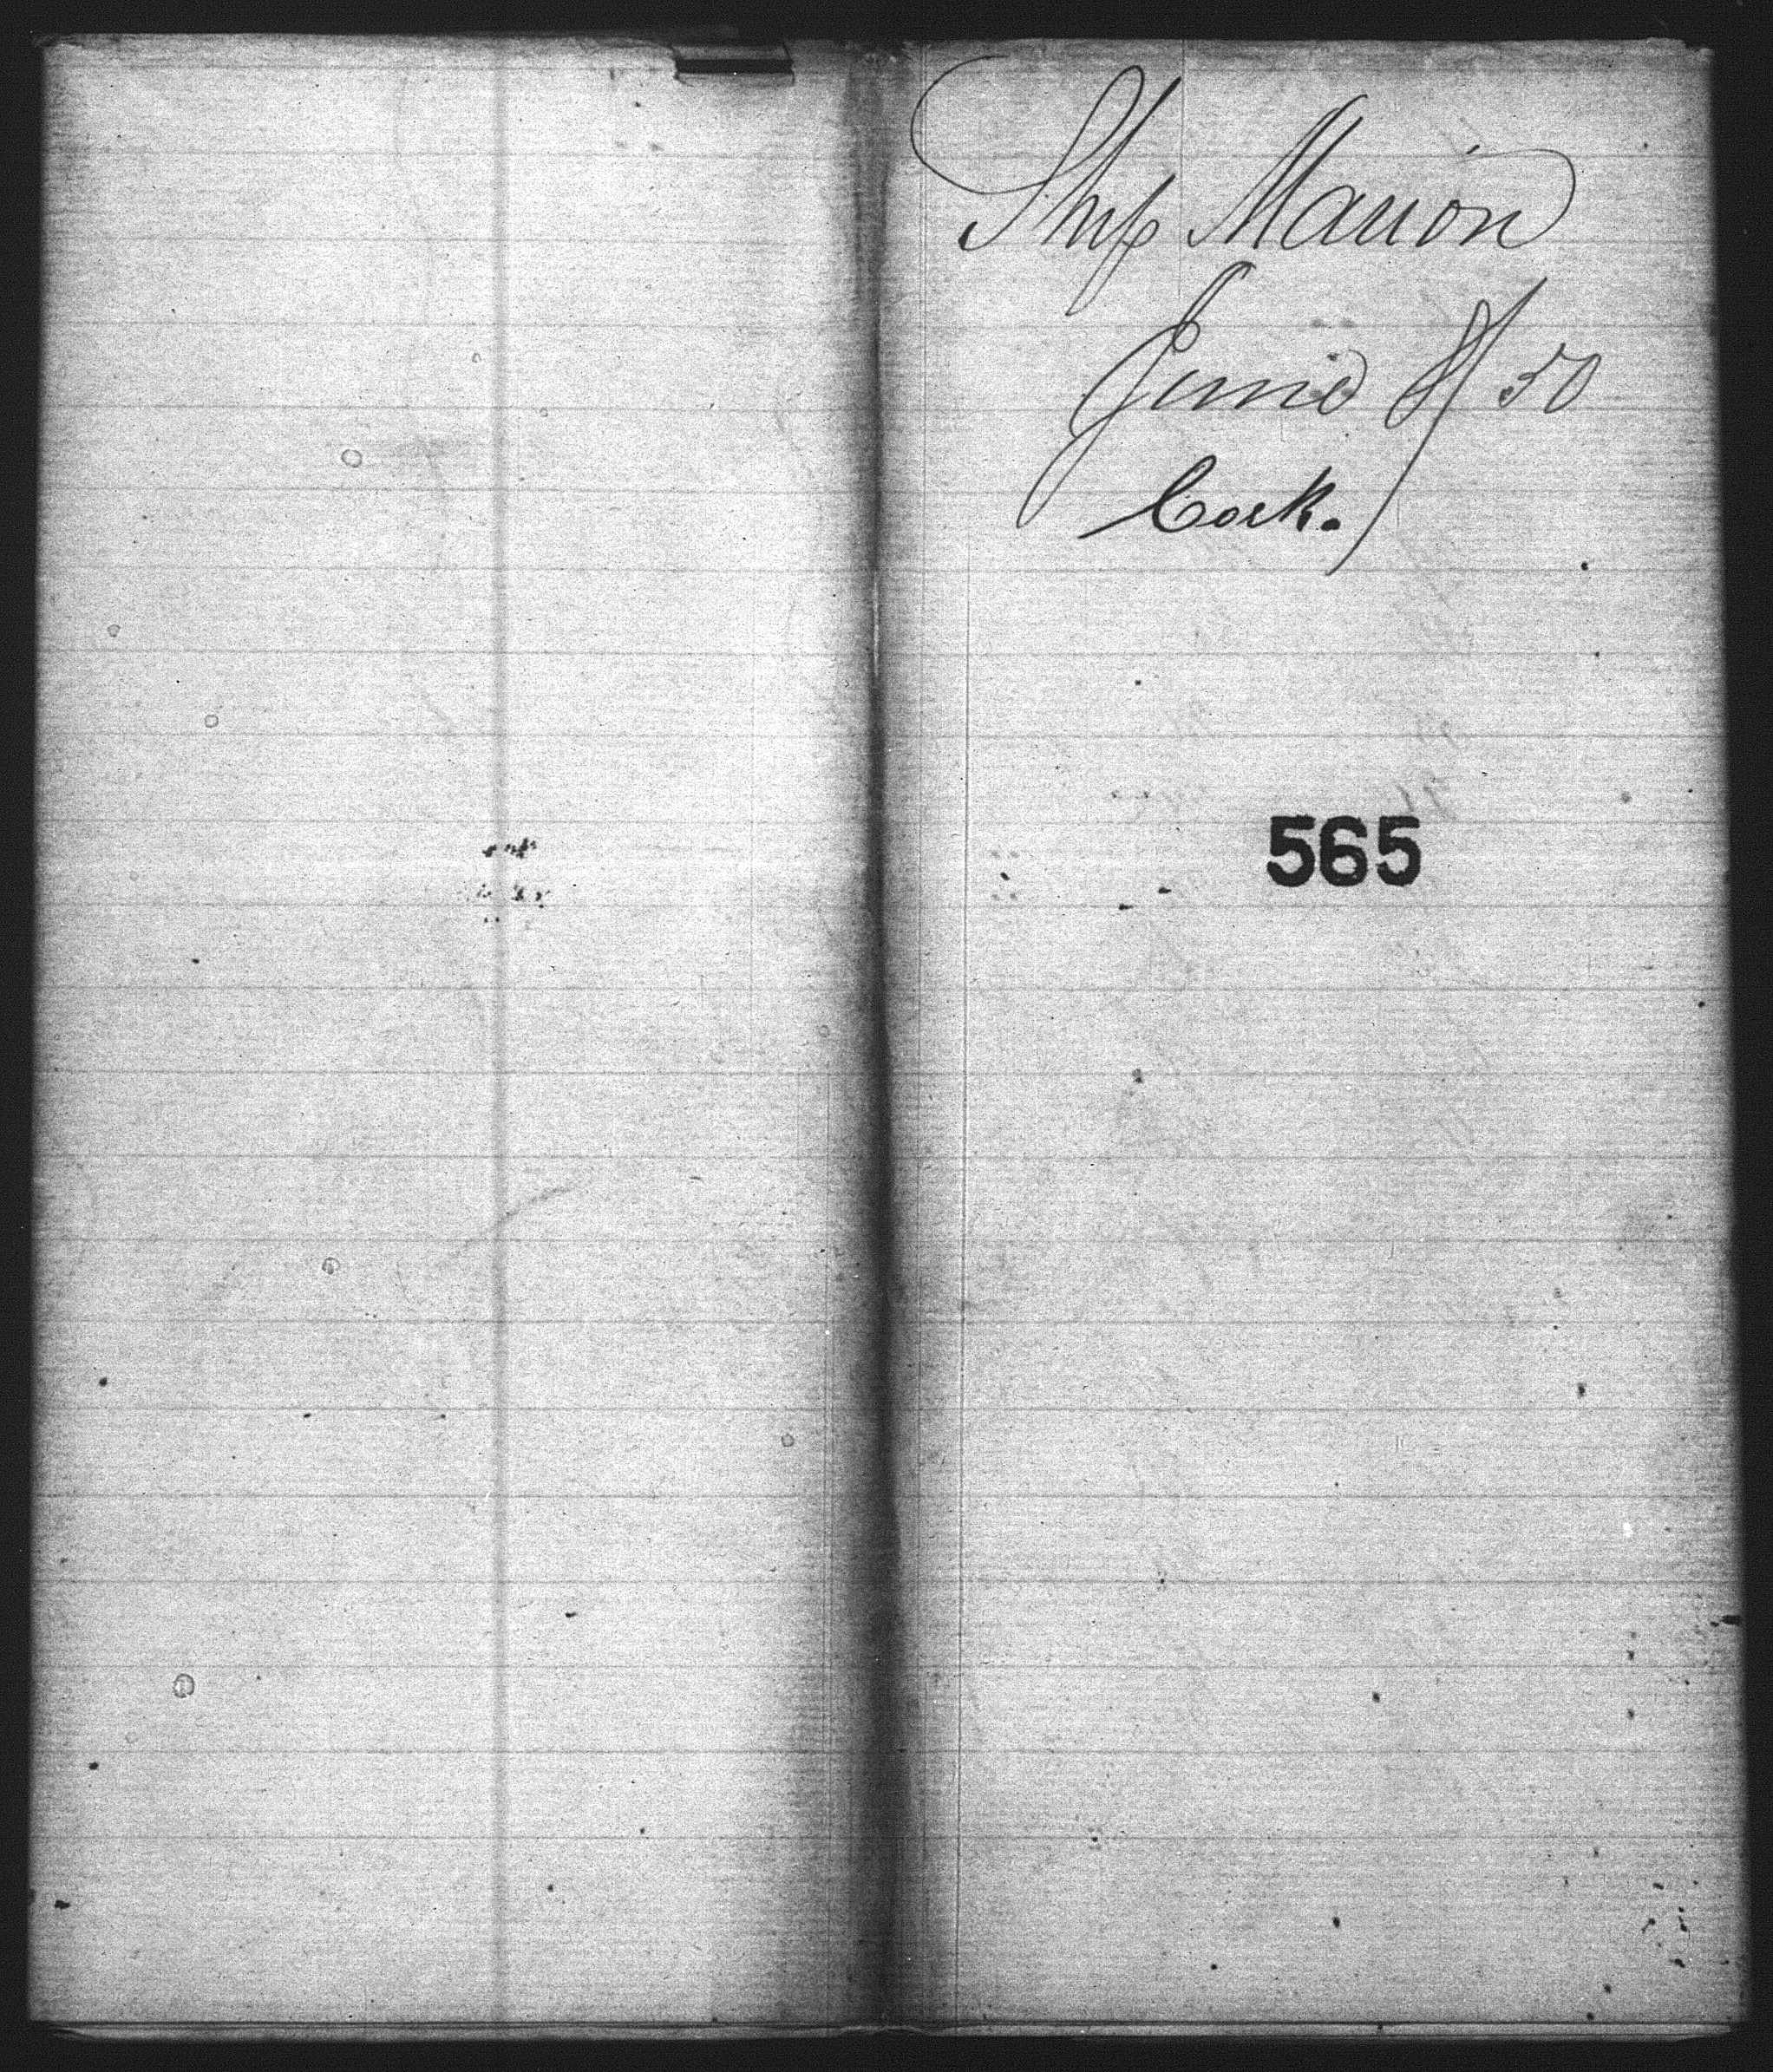 Ship Marion
June 8/50
Cork.
565